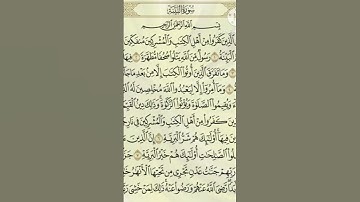 سُورَةُ البَيِّنَةِ
بِسْمِ ٱللَّهِ ٱلرَّحْمَٰنِ ٱلرَّحِيمِ
ٱلَّذِينَ كَفَرُوا۟ مِنْ أَهْلِ ٱلْكِتَٰبِ وَٱلْمُشْرِكِينَ مُنفَكِّينَ
ٱلْبَيِّنَةُ ١ رَسُولٌ مِّنَ ٱللَّهِ يَتْلُوا۟ صُحُفًا مُّطَهَّرَةً ٢
وَمَا تَفَرَّقَ ٱلَّذِينَ أُوتُوا۟ ٱلْكِتَٰبَ إِلَّا مِنۢ بَعْدِ مَا
وَمَآ أُمِرُوٓا۟ إِلَّا لِيَعْبُدُوا۟ ٱللَّهَ مُخْلِصِينَ لَهُ
وَيُقِيمُوا۟ ٱلصَّلَوٰةَ وَيُؤْتُوا۟ ٱلزَّكَوٰةَ وَذَٰلِكَ دِينُ
كَفَرُوا۟ مِنْ أَهْلِ ٱلْكِتَٰبِ وَٱلْمُشْرِكِينَ فِى نَارِ
فِيهَآ أُو۟لَٰٓئِكَ هُمْ شَرُّ ٱلْبَرِيَّةِ ٦ إِنَّ ٱلَّذِينَ
ٱلصَّٰلِحَٰتِ أُو۟لَٰٓئِكَ هُمْ خَيْرُ ٱلْبَرِيَّةِ ٧
رَبِّهِمْ جَنَّٰتُ عَدْنٍ تَجْرِى مِن تَحْتِهَا ٱلْأَنْهَٰرُ
رَّضِىَ ٱللَّهُ عَنْهُمْ وَرَضُوا۟ عَنْهُ ذَٰلِكَ لِمَنْ خَشِىَ